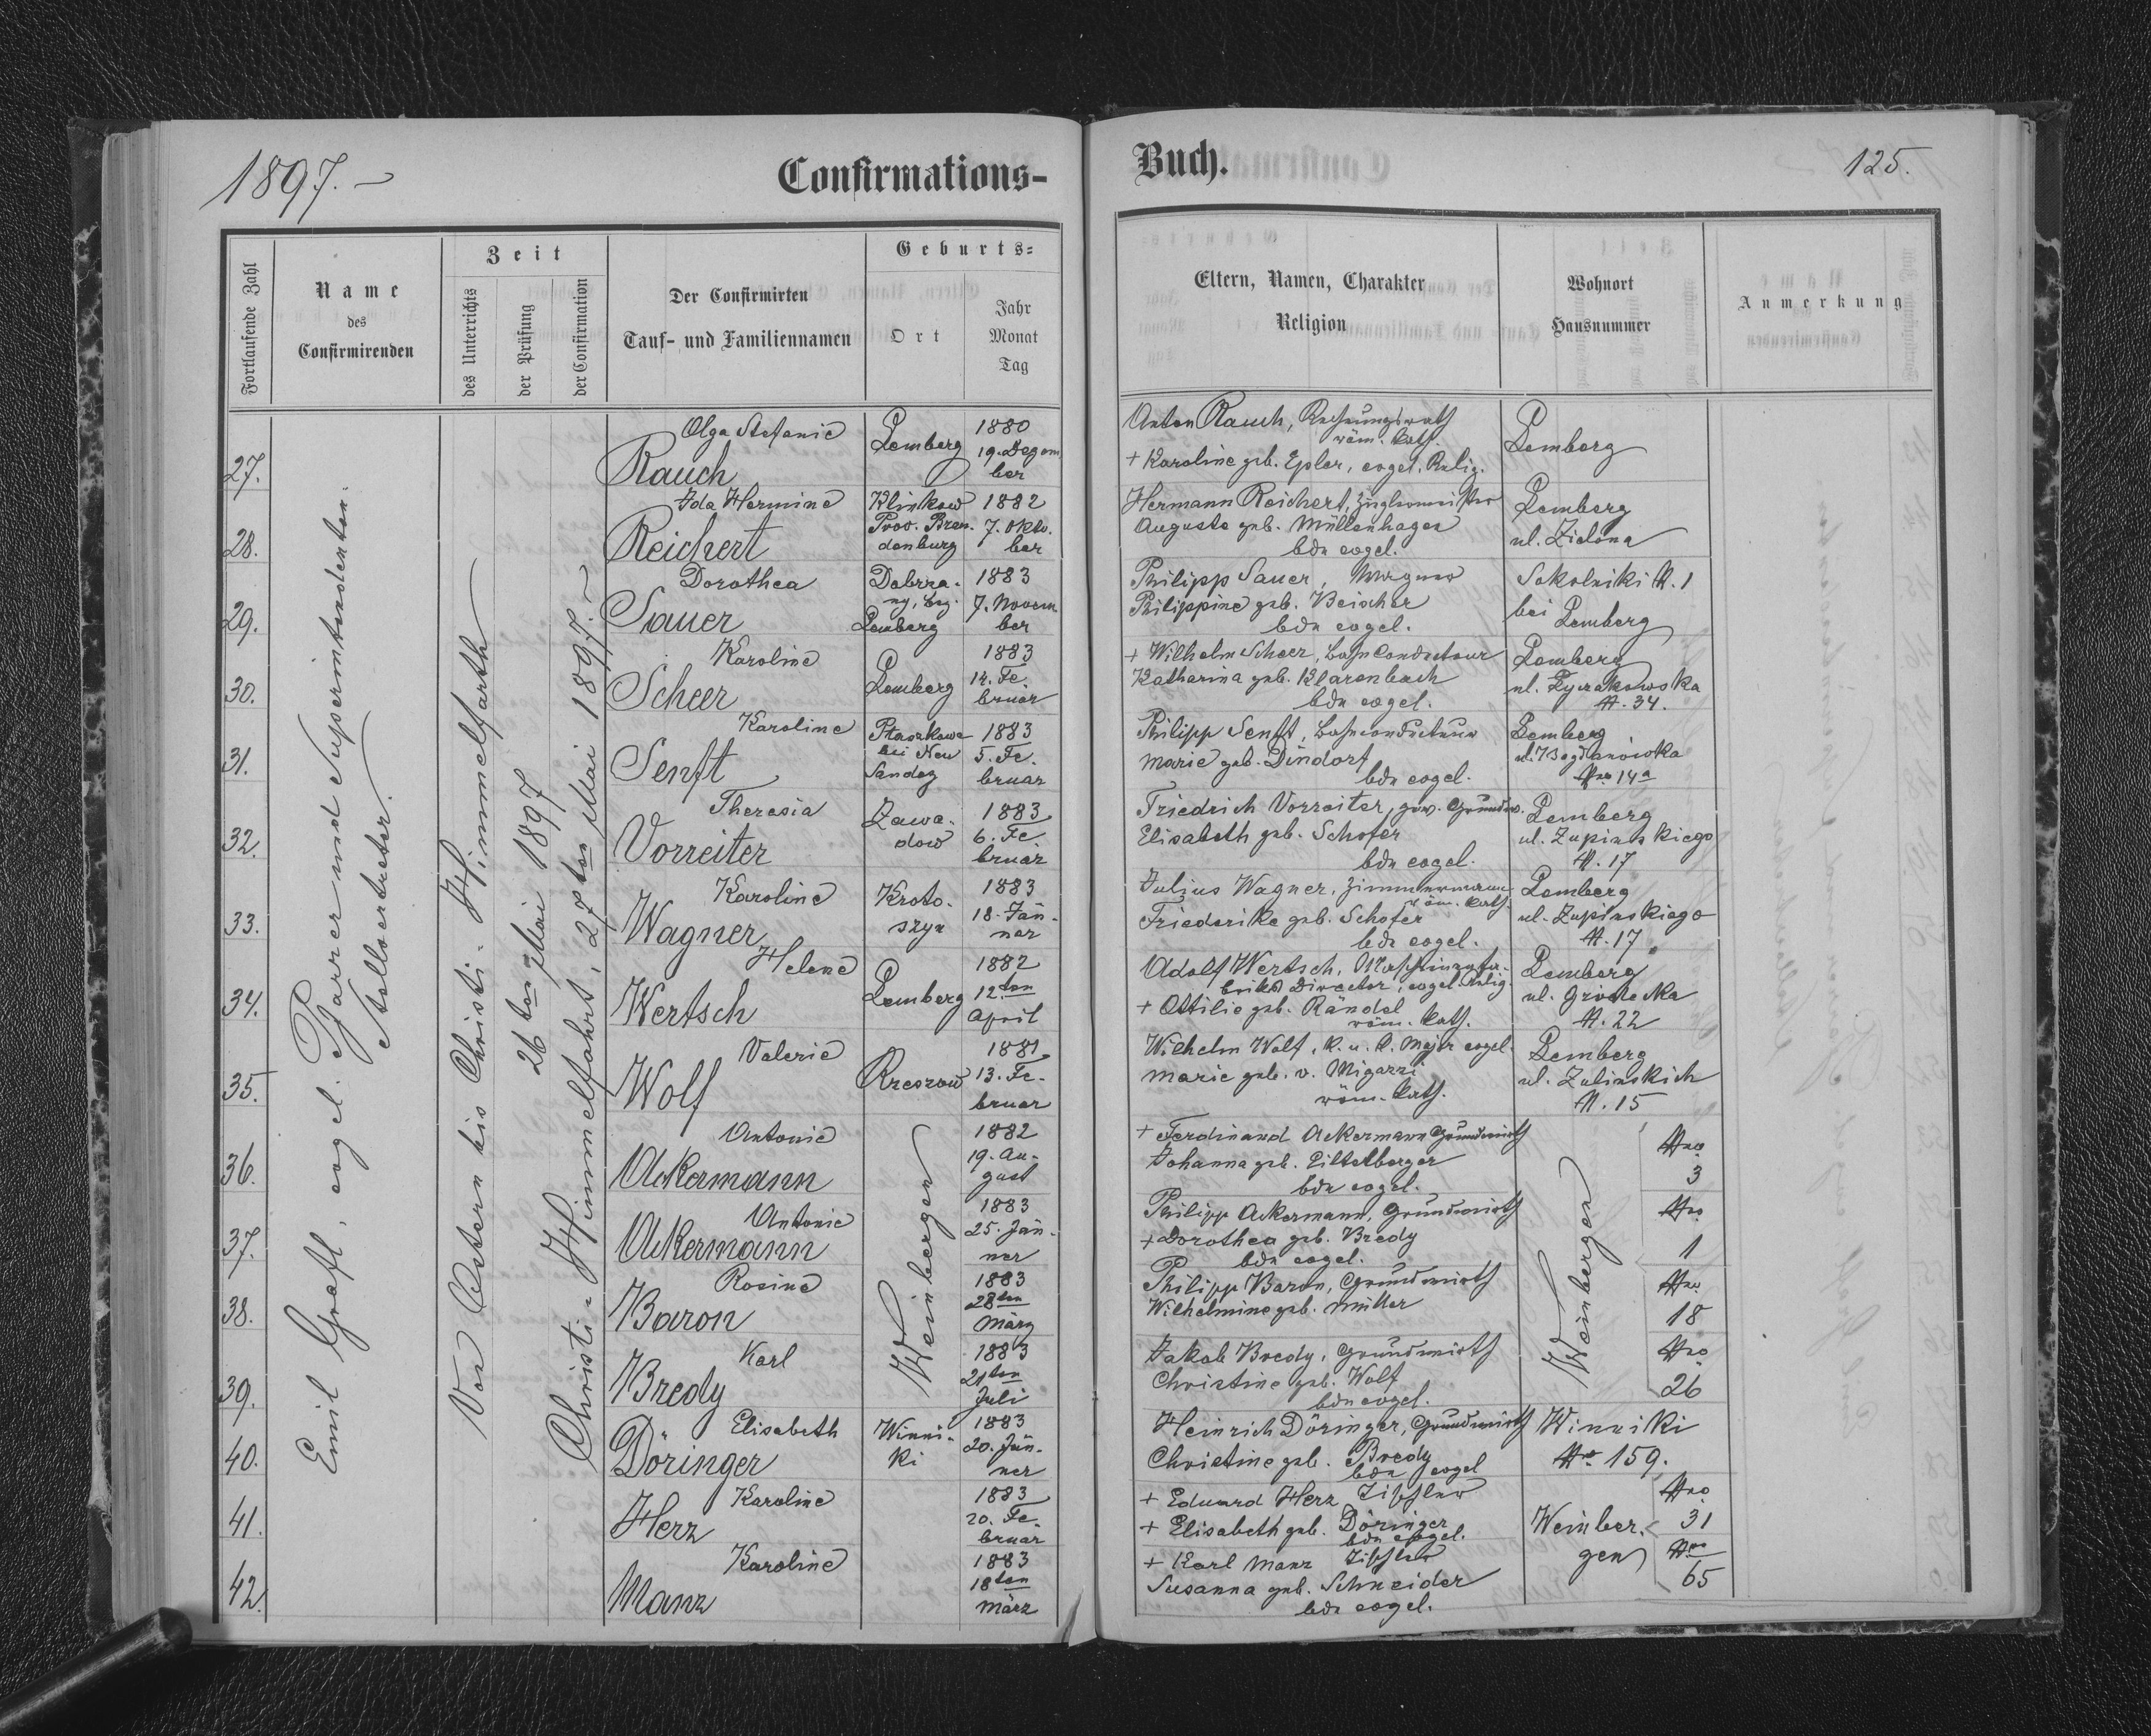 1897.-
Confirmations-
Buch.
125.
Fortlaufende Zahl
Name
des
Confirmirenden
Zeit
des Unterrichts
der Prüfung
der Confirmation
Der Confirmirten
Tauf- und Familiennamen
Geburts-
Ort
Jahr
Monat
Tag
Eltern, Namen, Charakter
Religion
Wohnort
Hausnummer
Anmerkung
Emil Graefl, evgel. Pfarrer und Superintendenten-
Stellvertreter.
Von Ostern bis Christi-Himmelfarth
26ten Mai 1897
Christi-Himmelfahrt, 27ten Mai 1897.-
27.
Olga Stefanie
Rauch
Lemberg
1880
19. Dezem
ber
Anton Rauch, Rechnungsrath
röm. kath.
+ Karoline geb. Epler, evgel. Relig.
Lemberg
28.
Ida Hermine
Reichert
Klinkow
Prov. Bran-
denburg
1882
7. Okto-
ber
Hermann Reichert, Zieglermeister
Auguste geb. Müllenhagen
bde evgel.
Lemberg
ul. Zielona
29.
Dorothea
Sauer
Dobrza-
ny, bez.
Lemberg
1883
7. Novem
ber
Philipp Sauer, Wagner
Philippine geb. Beischer
bde evgel.
Sokolniki N. 1
bei Lemberg
30.
Karoline
Scheer
Lemberg
1883
14. Fe
bruar
+ Wilhelm Scheer, Bahnconducteur
Katharina geb. Klarenbach
bde evgel.
Lemberg
ul. Zyzakowska
N. 34.
31.
Karoline
Senft
Ptaszkowa
bei Neu
Sandez
1883
5. Fe-
bruar
Philipp Senft, Bahnconducteur
Marie geb. Dindorf
bde evgel.
Lemberg
ul. Bogdanówka
Nro 14a
32.
Theresia
Vorreiter
Zawa-
dow
1883
6. Fe
bruar
Friedrich Vorreiter, gew. Grundw.
Elisabeth geb. Schofer
bde evgel.
Lemberg
ul. Zupinskiego
N. 17
33.
Karoline
Wagner
Kroto-
szyn
1883
18. Jän-
ner
Julius Wagner, Zimmermann
röm. kath.
Friederike geb. Schofer
bde evgel.
Lemberg
ul. Zupinskiego
N. 17
34.
Helene
Wertsch
Lemberg
1882
12.ten
April
Adolf Wertsch, Maschinenfa-
briks Director, evgel. Relig.
+ Ottilie geb. Rändel
röm. kath.
Lemberg
ul. Grodecka
N. 22
35.
Valerie
Wolf
Rzeszow
1881
13. Fe-
bruar
Wilhelm Wolf, k. u. k. Major evgel.
Marie geb. v. Migazzi
röm. kath.
Lemberg
ul. Zulinskich
N. 15
36.
Antonie
Ackermann
Weinbergen
1882
19. Au-
gust
+ Ferdinand Ackermann Grundwirth
Johanna geb.
bde evgel.
Weinbergen
Nro
3
37.
Antonie
Ackermann
1883
25. Jän-
ner
Philipp Ackermann, Grundwirth
+ Dorothea geb. Bredy
bde evgel.
Nro
1
38.
Rosine
Baron
1883
28ten
März
Philipp Baron, Grundwirth
Wilhelmine geb. Müller
Nro
18
39.
Karl
Bredy
1883
21ten
Juli
Jakob Bredy, Grundwirth
Christine geb. Wolf
bde evgel.
Nro
26
40.
Elisabeth
Döringer
Winni-
ki
1883
20. Jän-
ner
Heinrich Döringer, Grundwirth
Christine geb. Bredy
bde evgel
Winniki
No 159.
41.
Karoline
Herz
1883
20. Fe-
bruar
+ Eduard Herz Tischler
+ Elisabeth geb. Döringer
bde evgel.
Weinber-
gen
Nro
31
42.
Karoline
Manz
1883
18ten
März
+ Karl Manz Tischler
Susanna geb. Schneider
bde evgel.
Nro
65